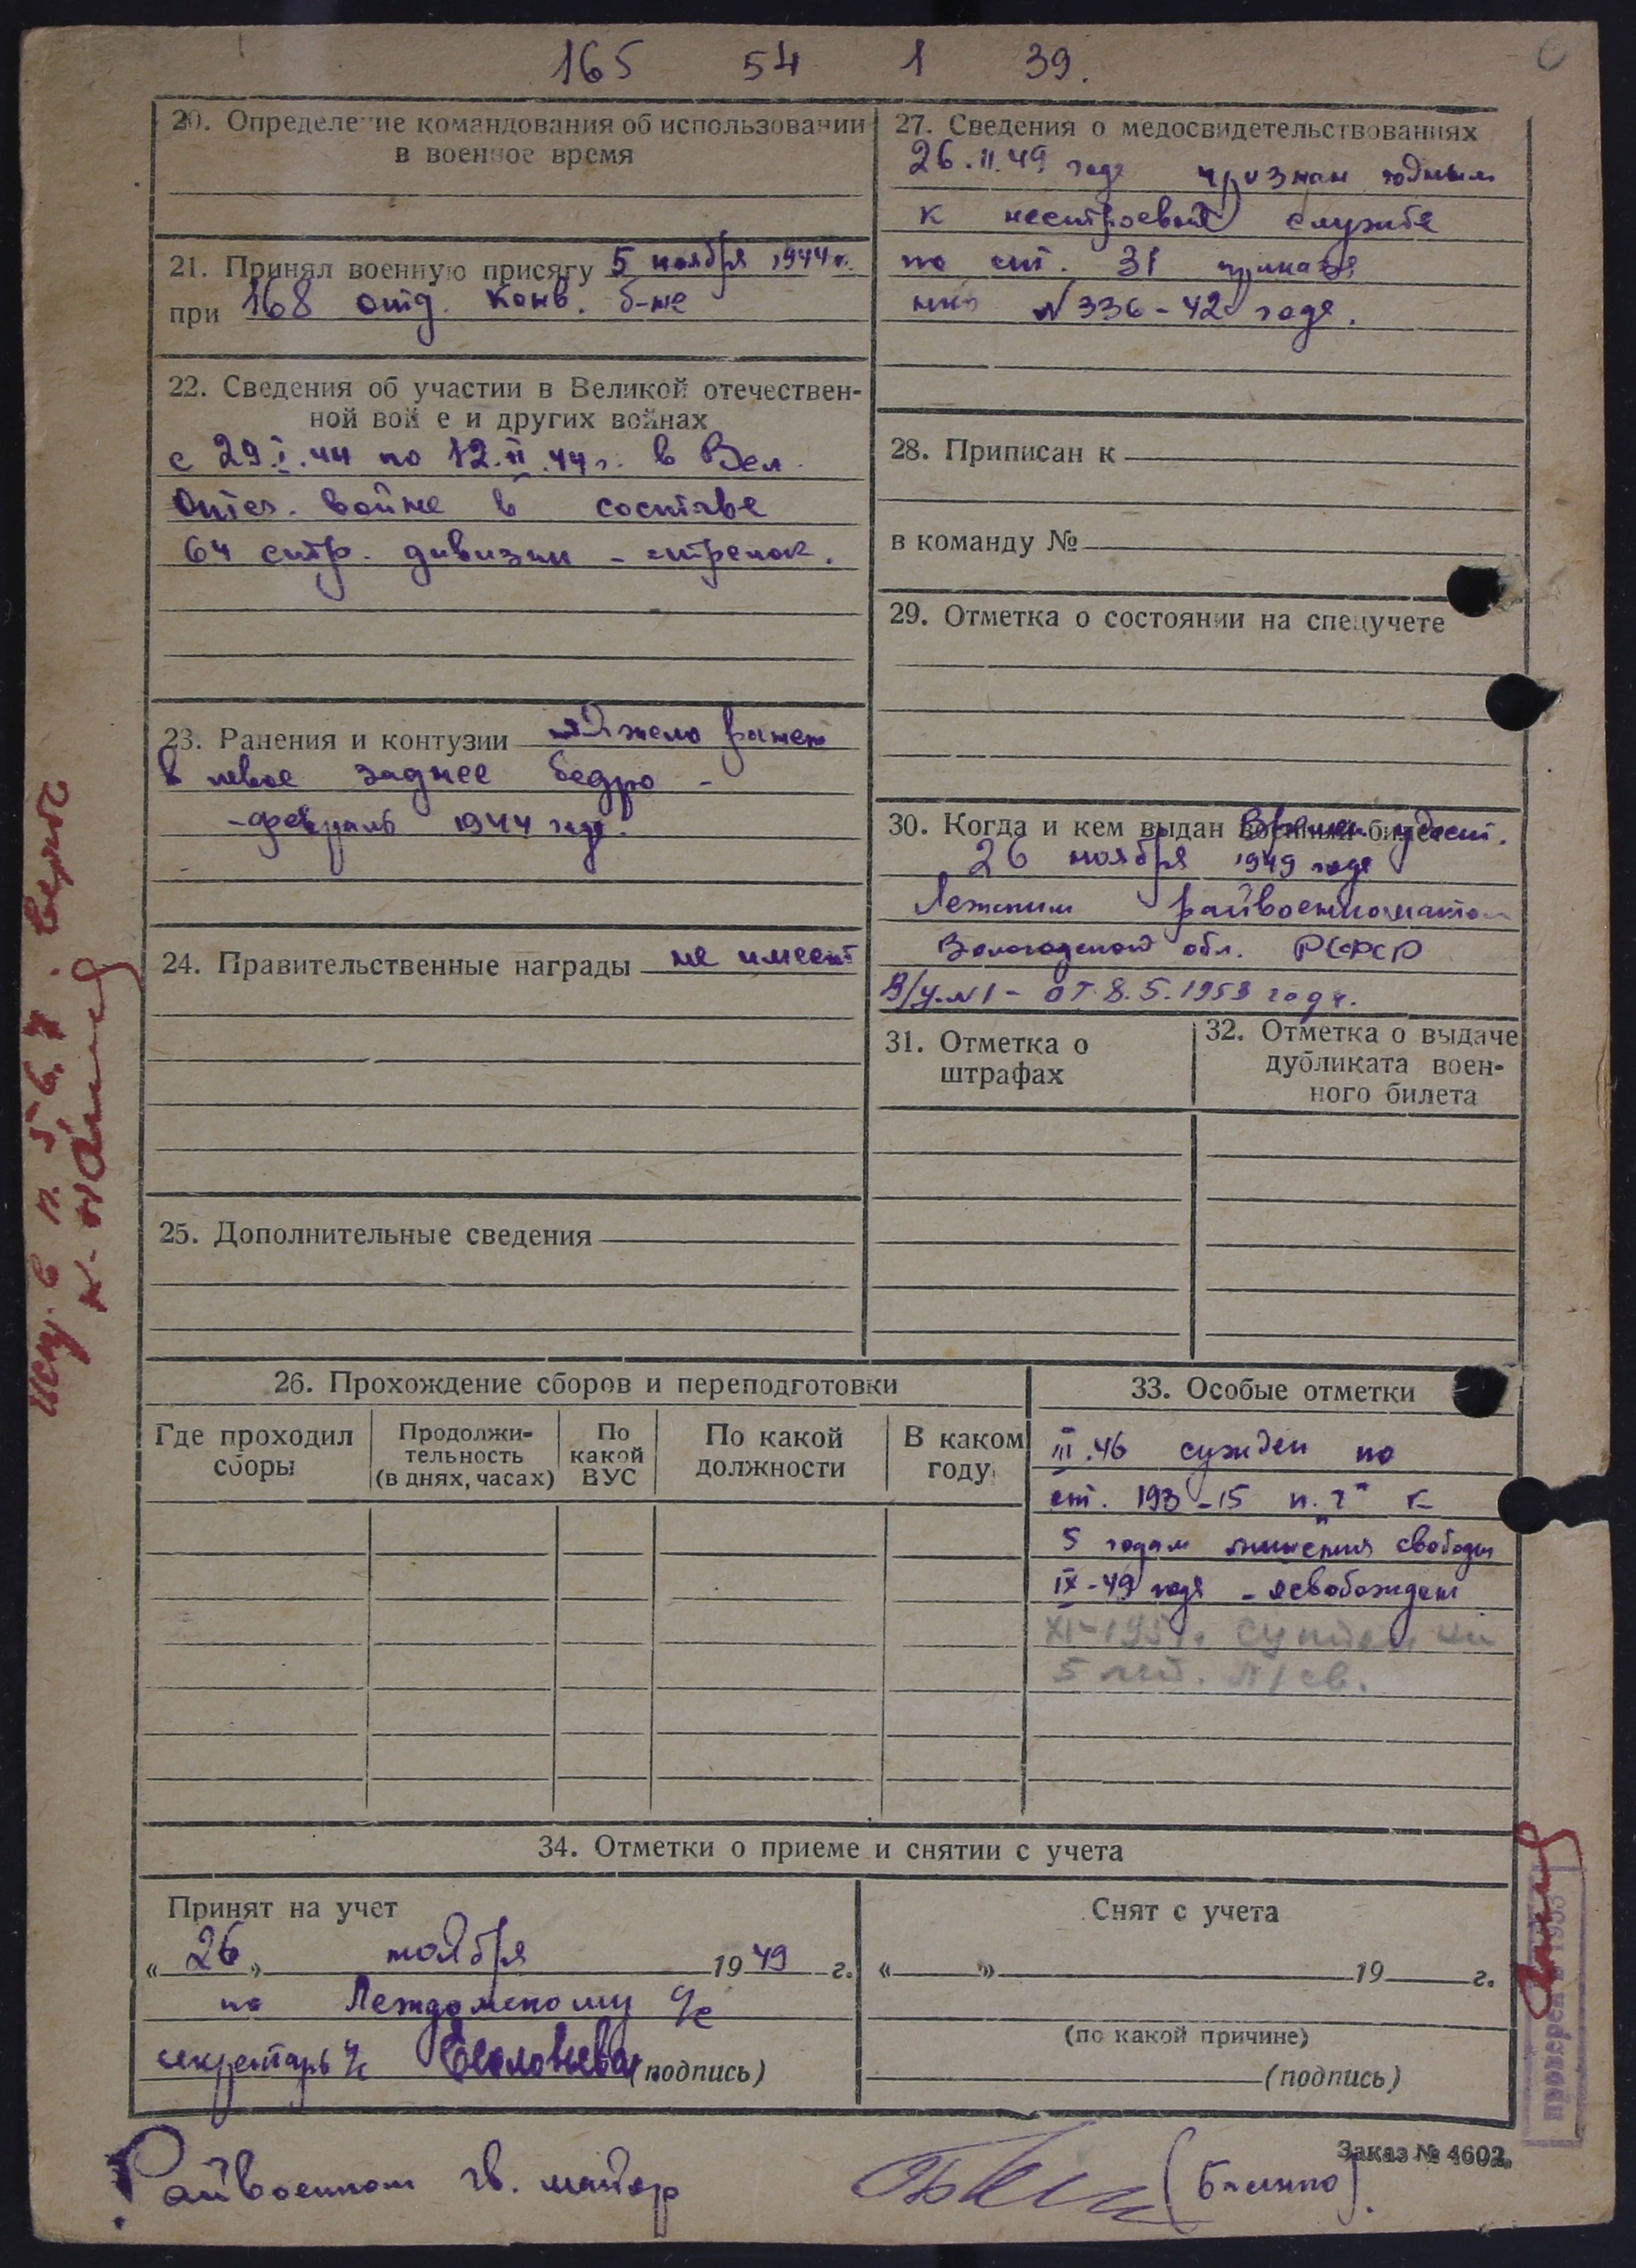 165 54 1 39.
20. Определение командования об использовании
в военное время
21. Принял военную присягу 5 ноября 1944 г.
при 168 отд. конв. б-не
22. Сведения об участии в Великой отечествен-
ной вой е и других войнах
с 29.I.44 по 12.II.44 г. в Вел.
Отеч. войне в составе
64 стр. дивизии - стрелок.
23. Ранения и контузии тяжело ранен
в левое заднее бедро -
- февраль 1944 года.
24. Правительственные награды не имеет
25. Дополнительные сведения
27. Сведения о медосвидетельствованиях
26.11.49 года признан годным
к нестроевой службе
по ст. 31 приказа
нко № 336-42 года.
28. Приписан к
в команду №
29. Отметка о состоянии на спецучете
30. Когда и кем выдан военный билет Времен. удост.
26 ноября 1949 года
Лежским райвоенкоматом
Вологодской обл. РСФСР
В/у. №1 - от 8.5.1953 года.
31. Отметка о
штрафах
32. Отметка о выдаче
дубликата воен-
ного билета
26. Прохождение сборов и переподготовки
Где проходил
сборы
Продолжи-
тельность
(в днях, часах)
По
какой
ВУС
По какой
должности
В каком
году
33. Особые отметки
III.46 сужден по
ст. 193-15 п. "г" к
5 годам лишения свободы
IX-49 года - освобожден
XI-1951г. сужден на
5 лет. л/св.
34. Отметки о приеме и снятии с учета
Принят на учет
« 26 » ноября 1949 г.
по Леждомскому с/с
секретарь с/с (подпись)
Снят с учета
« » 19 г.
(по какой причине)
(подпись)
Заказ № 4602.
Райвоенком гв. майор
испр. в п. 5, 6, 7. верить
проверен 1953